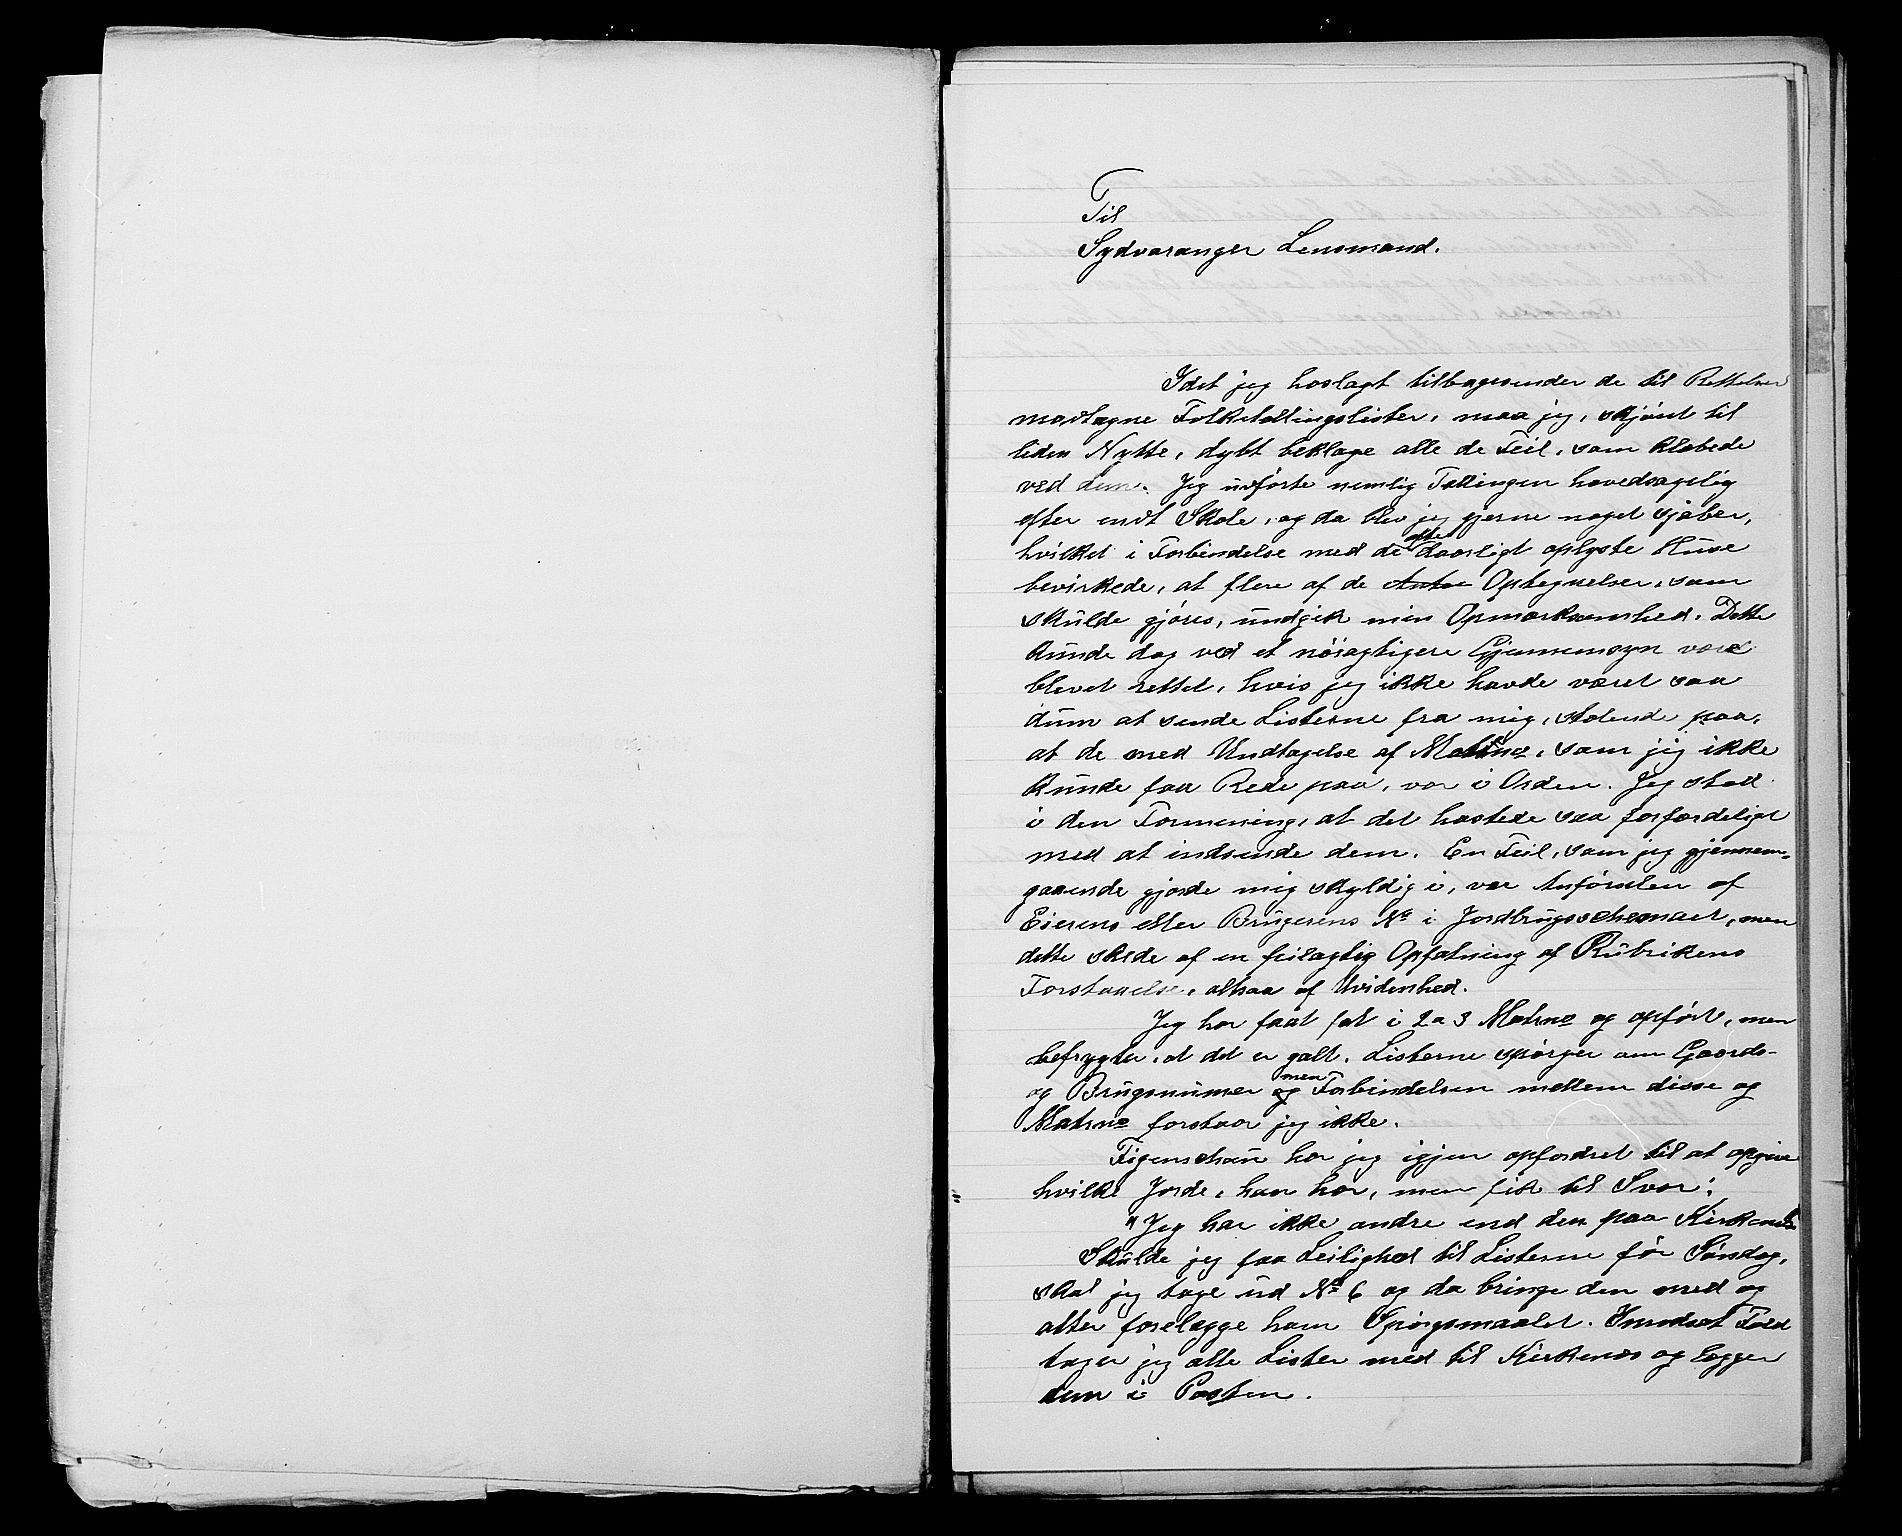 Til
Sydvaranger Lensmand.
Idet jeg hoslagt tilbagesender de til Rettelser
modtagne Folketællingslister, maa jeg, skjønt til
liden Nytte, dybt beklage alle de Feil, som klæbede
ved dem. Jeg udførte nemlig Tællingen hovedsagelig
efter endt Skole, og da blev jeg gjerne noget sjaber,
hvilket i Forbindelse med de ofte daarligt oplyste Huse
bevirkede, at flere af de Optegnelser, som
skulde gjøres, undgik min Opmærksomhed. Dette
kunde dog ved et nøiagtigere Gjennemsyn være
blevet rettet, hvis jeg ikke havde været saa
dum at sende Listerne fra mig, stolende paa,
at de med Undtagelse af Matrno, som jeg ikke
kunde faa Rede paa, var i Orden. Jeg stod
i den Formening, at det hastede saa forfærdeligt
med at indsende dem. En Feil, som jeg gjennem-
gaaende gjorde mig skyldig i, var Anførselen af
Eierens eller Brugerens No i Jordbrugsschemaet, men
dette skede af en feilagtig Opfatning af Rubrikens
Forstaaelse, altsaa af Uvidenhed.
Jeg har faat fat i 2 a 3 Matrno og opført, men
befrygter, at det er galt. Listerne spørger om Gaards-
og Brugsnumer men Forbindelsen mellem disse og
Matrno forstaar jeg ikke.
Figenschau har jeg igjen opfordret til at opgive
hvilke Jorde, han har, men fik til Svar:
"Jeg har ikke andre end den paa Kirkenes
Skulde jeg faa Leilighed til Listerne før Søndag,
skal jeg tage ud No 6 og da bringe den med og
atter forelægge ham Spørgsmaalet. I modsat Fald
tager jeg alle Lister med til Kirkenes og lægger
dem i Posten.